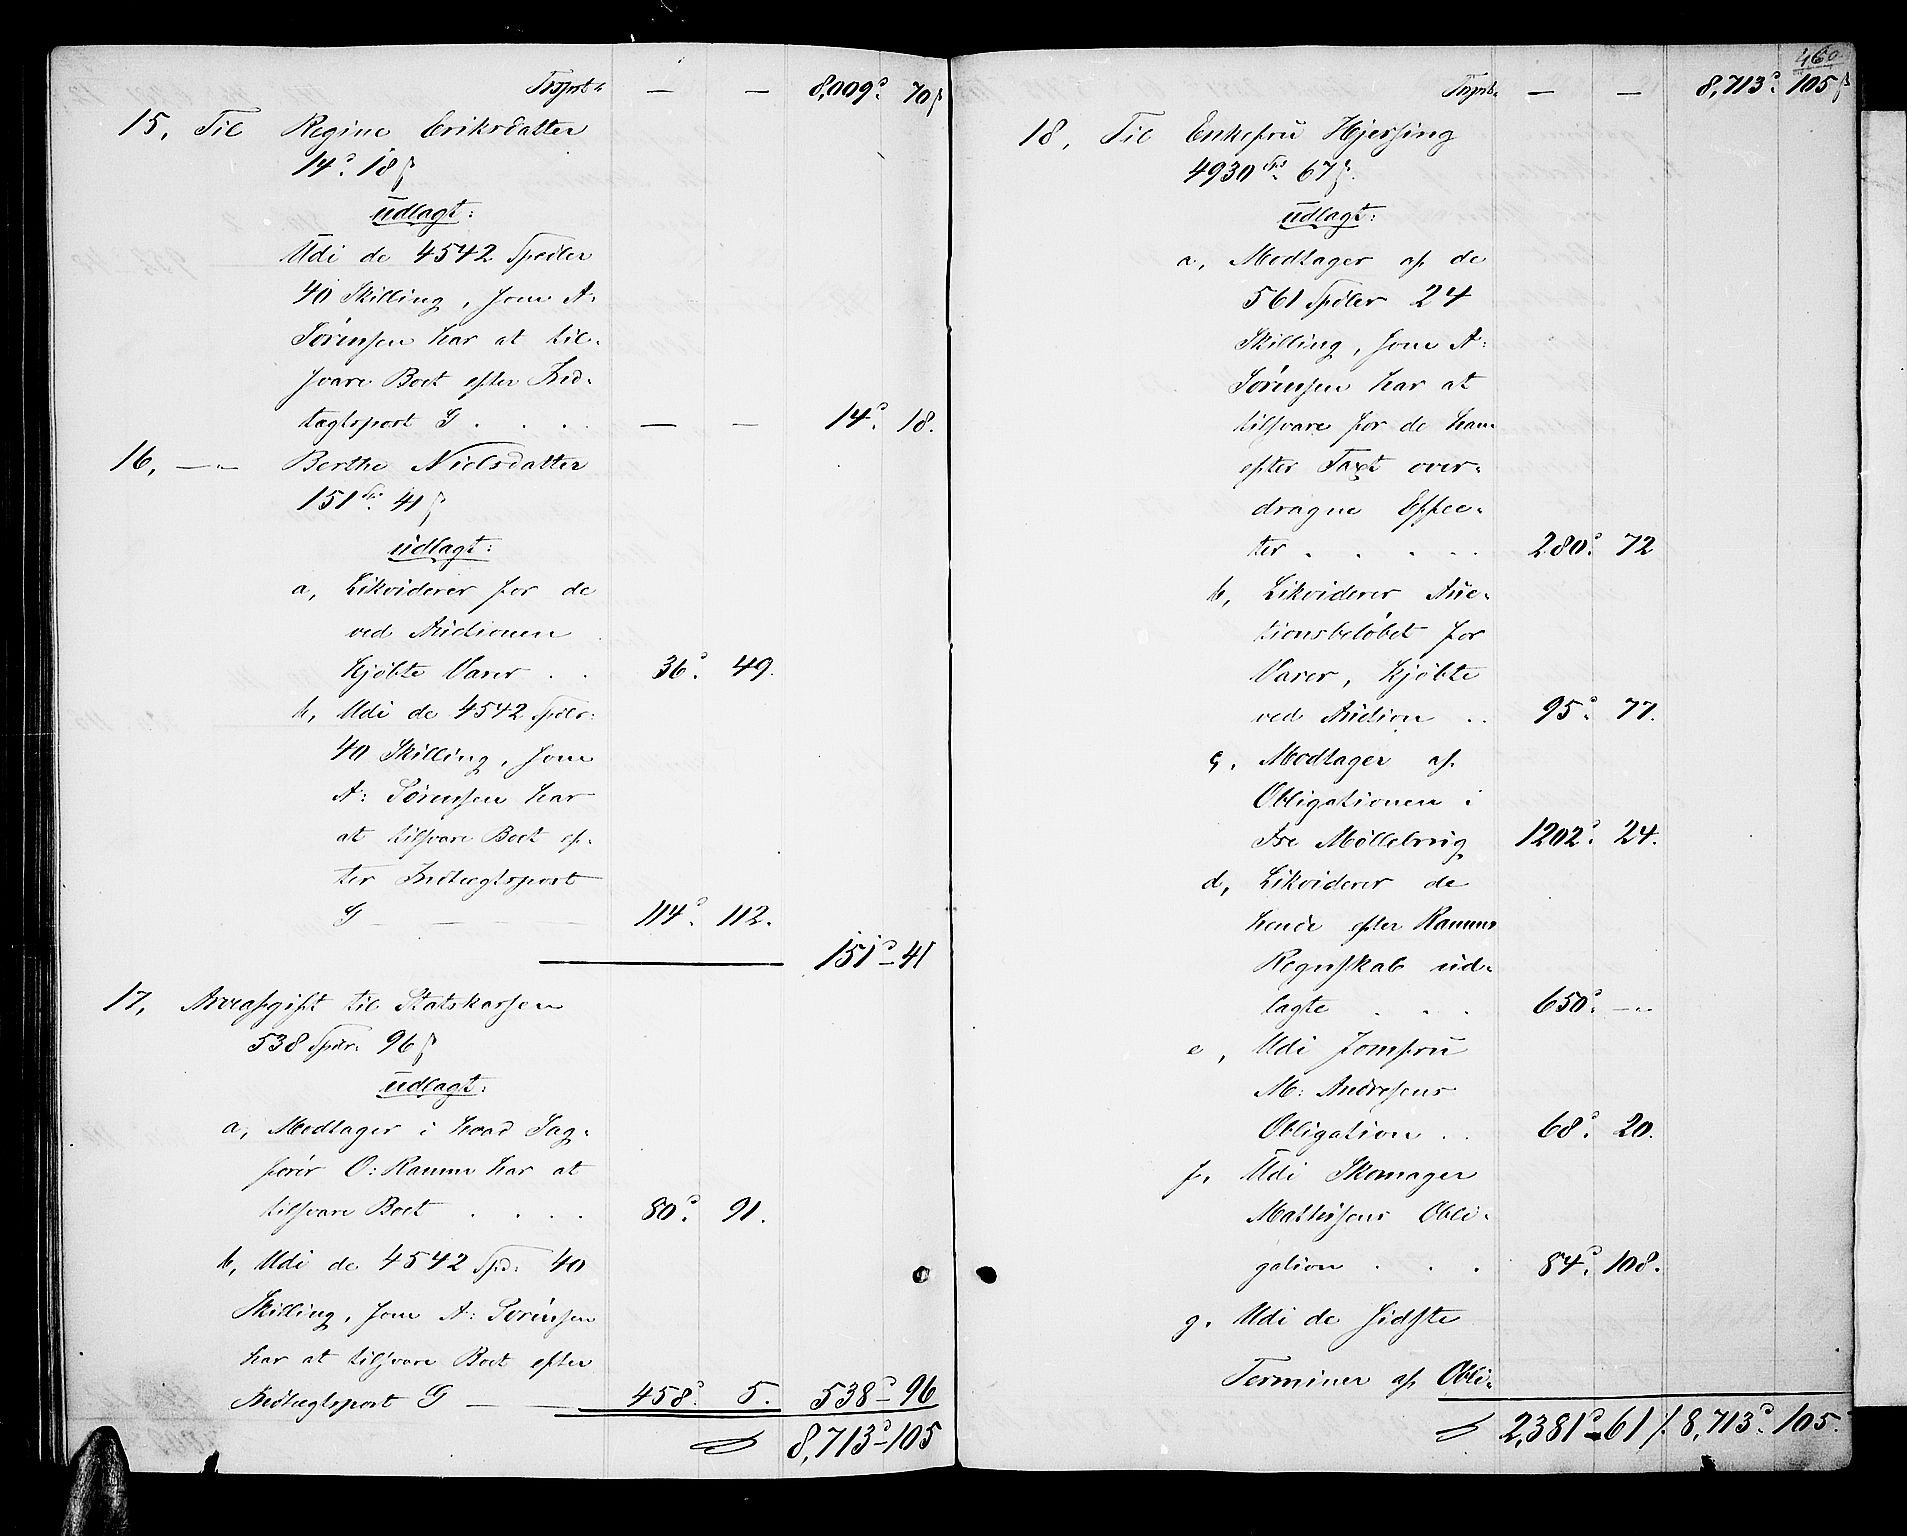 Transpt. — — 8,009. 70 ß
15, Til Regine Eriksdatter
14. 18 ß
udlagt:
Udi de 4542 Spdler
40 Skilling, som A:
Sørensen har at til-
svare Boet efter Ind-
tægtspost G . . . . — — 14. 18.
16, —„— Berthe Nielsdatter
151 Sp. 41 ß
udlagt:
a, Likviderer for de
ved Auctionen
kjøbte Varer . . 36. 49.
b, Udi de 4542 Spdlr:
40 Skilling, som
A: Sørensen har
at tilsvare Boet ef-
ter Indtægtspost
G — — — 114. 112.
151 - 41
17, Arveafgift til Statskassen
538 Spdlr. 96 ß
udlagt:
a, Modtager i hvad Sag-
fører O: Ramm har at
tilsvare Boet . . . . 80. 91.
b, Udi de 4542 Spd: 40
Skilling, som A: Sørensen
har at tilsvare Boet efter
Indtægtspost G — — 458. 5. 538 - 96
8,713 - 105
460.
Transpt. — — 8,713. 105 ß
18, Til Enkefru Hjersing
4930 Sp. 67 ß.
udlagt:
a, Modtager af de
561 Spdler 24
Skilling, som A:
Sørensen har at
tilsvare for de ham
efter Taxt over-
dragne Effec-
ter . . . . . 280. 72
b, Likviderer Auc-
tionsbeløbet for
Varer, kjøbte
ved Auction . . 95. 77.
c. Modtager af
Obligationen i
Fre Møllebrug 1202. 24.
d, Likviderer de
hende efter Ramms
Regnskab ud-
lagte . . . 650. —„
e, Udi Jomfru
M: Andresens
Obligation . . 68. 20.
f, Udi Skomager
Mathisens Obli-
gation . . . 84. 108.
g. Udi de sidste
Terminer af Obli-
2,381 - 61 /. 8,713. 105.